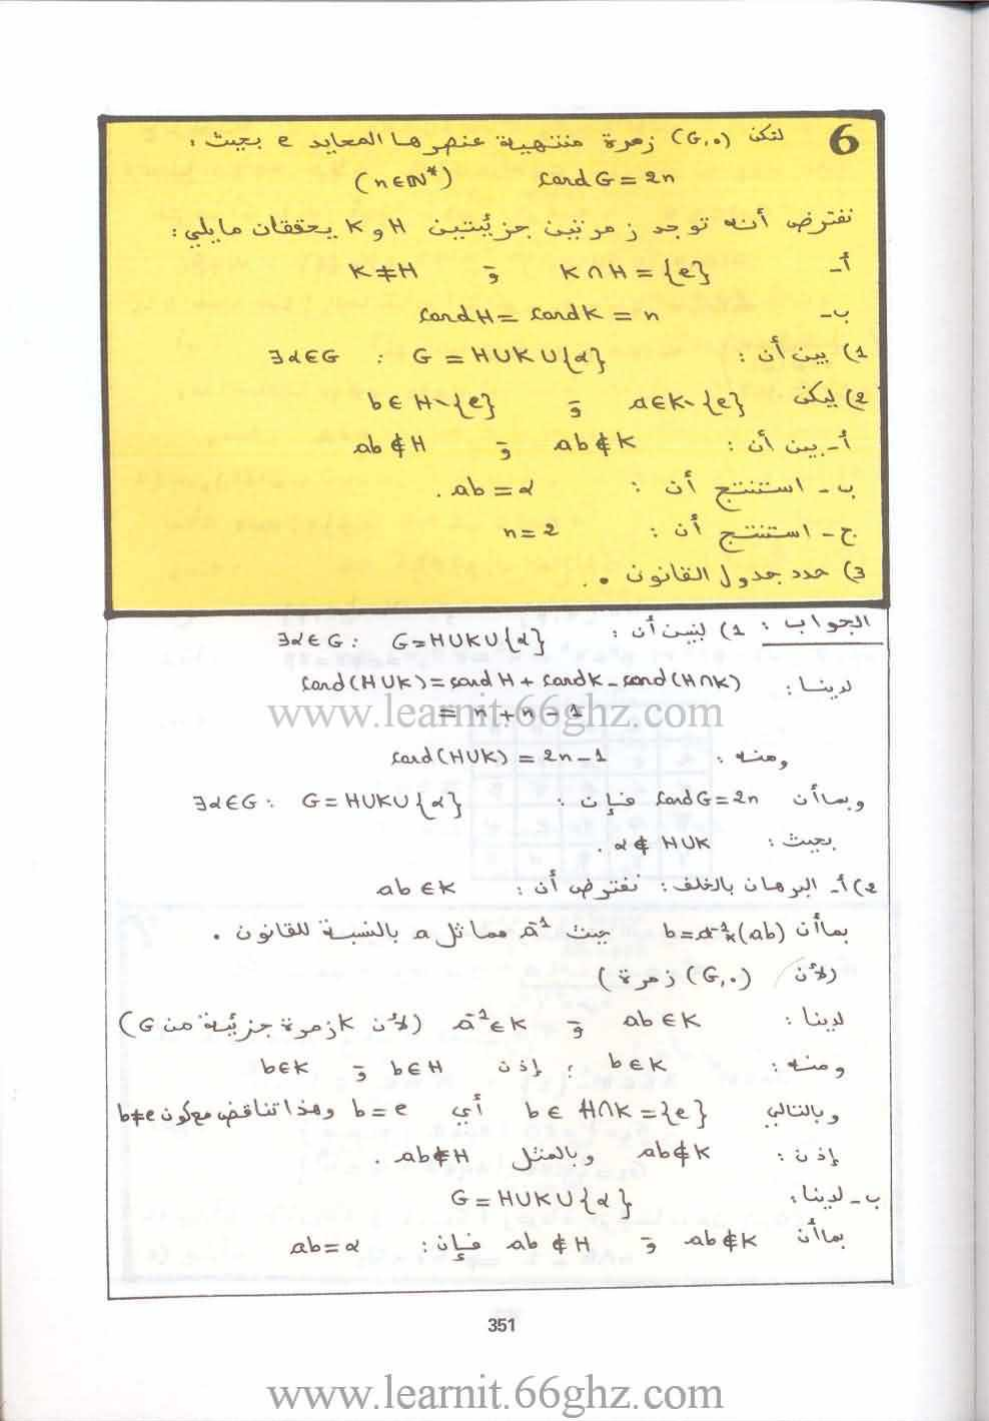 6 لتكن (G,•) زمرة منتهية عنصرها المحايد e بحيث :
cardG = 2n (n∈ℕ*)
نفترض أنه توجد زمرتين جزئيتين H و K يحققان مايلي :
أ- K∩H = {e} و K≠H
ب- cardH = cardK = n
1) بين أن : ∃α∈G : G = H∪K∪{α}
2) ليكن a∈K\{e} و b∈H\{e}
أ- بين أن : ab∉K و ab∉H
ب- استنتج أن : ab=α .
ج- استنتج أن : n=2
3) حدد جدول القانون .
الجواب : 1) لنبين أن : ∃α∈G : G=H∪K∪{α}
لدينا : card(H∪K)=cardH+cardK-card(H∩K)
= n+n-1
ومنه : card(H∪K) = 2n-1
وبماأن cardG=2n فإن : ∃α∈G : G=H∪K∪{α}
بحيث : α∉H∪K .
2) أ- البرهان بالخلف : نفترض أن : ab∈K
بماأن b=a⁻¹*(ab) حيث a⁻¹ مماثل a بالنسبة للقانون .
(لأن (G,•) زمرة)
لدينا : ab∈K و a⁻¹∈K (لأن K زمرة جزئية من G)
ومنه : b∈K ; إذن b∈H و b∈K
وبالتالي b∈H∩K={e} أي b=e وهذا تناقض مع كون b≠e
إذن : ab∉K وبالمثل ab∉H .
ب- لدينا : G=H∪K∪{α}
بماأن ab∉K و ab∉H فإن : ab=α
351
www.learnit.66ghz.com
www.learnit.66ghz.com